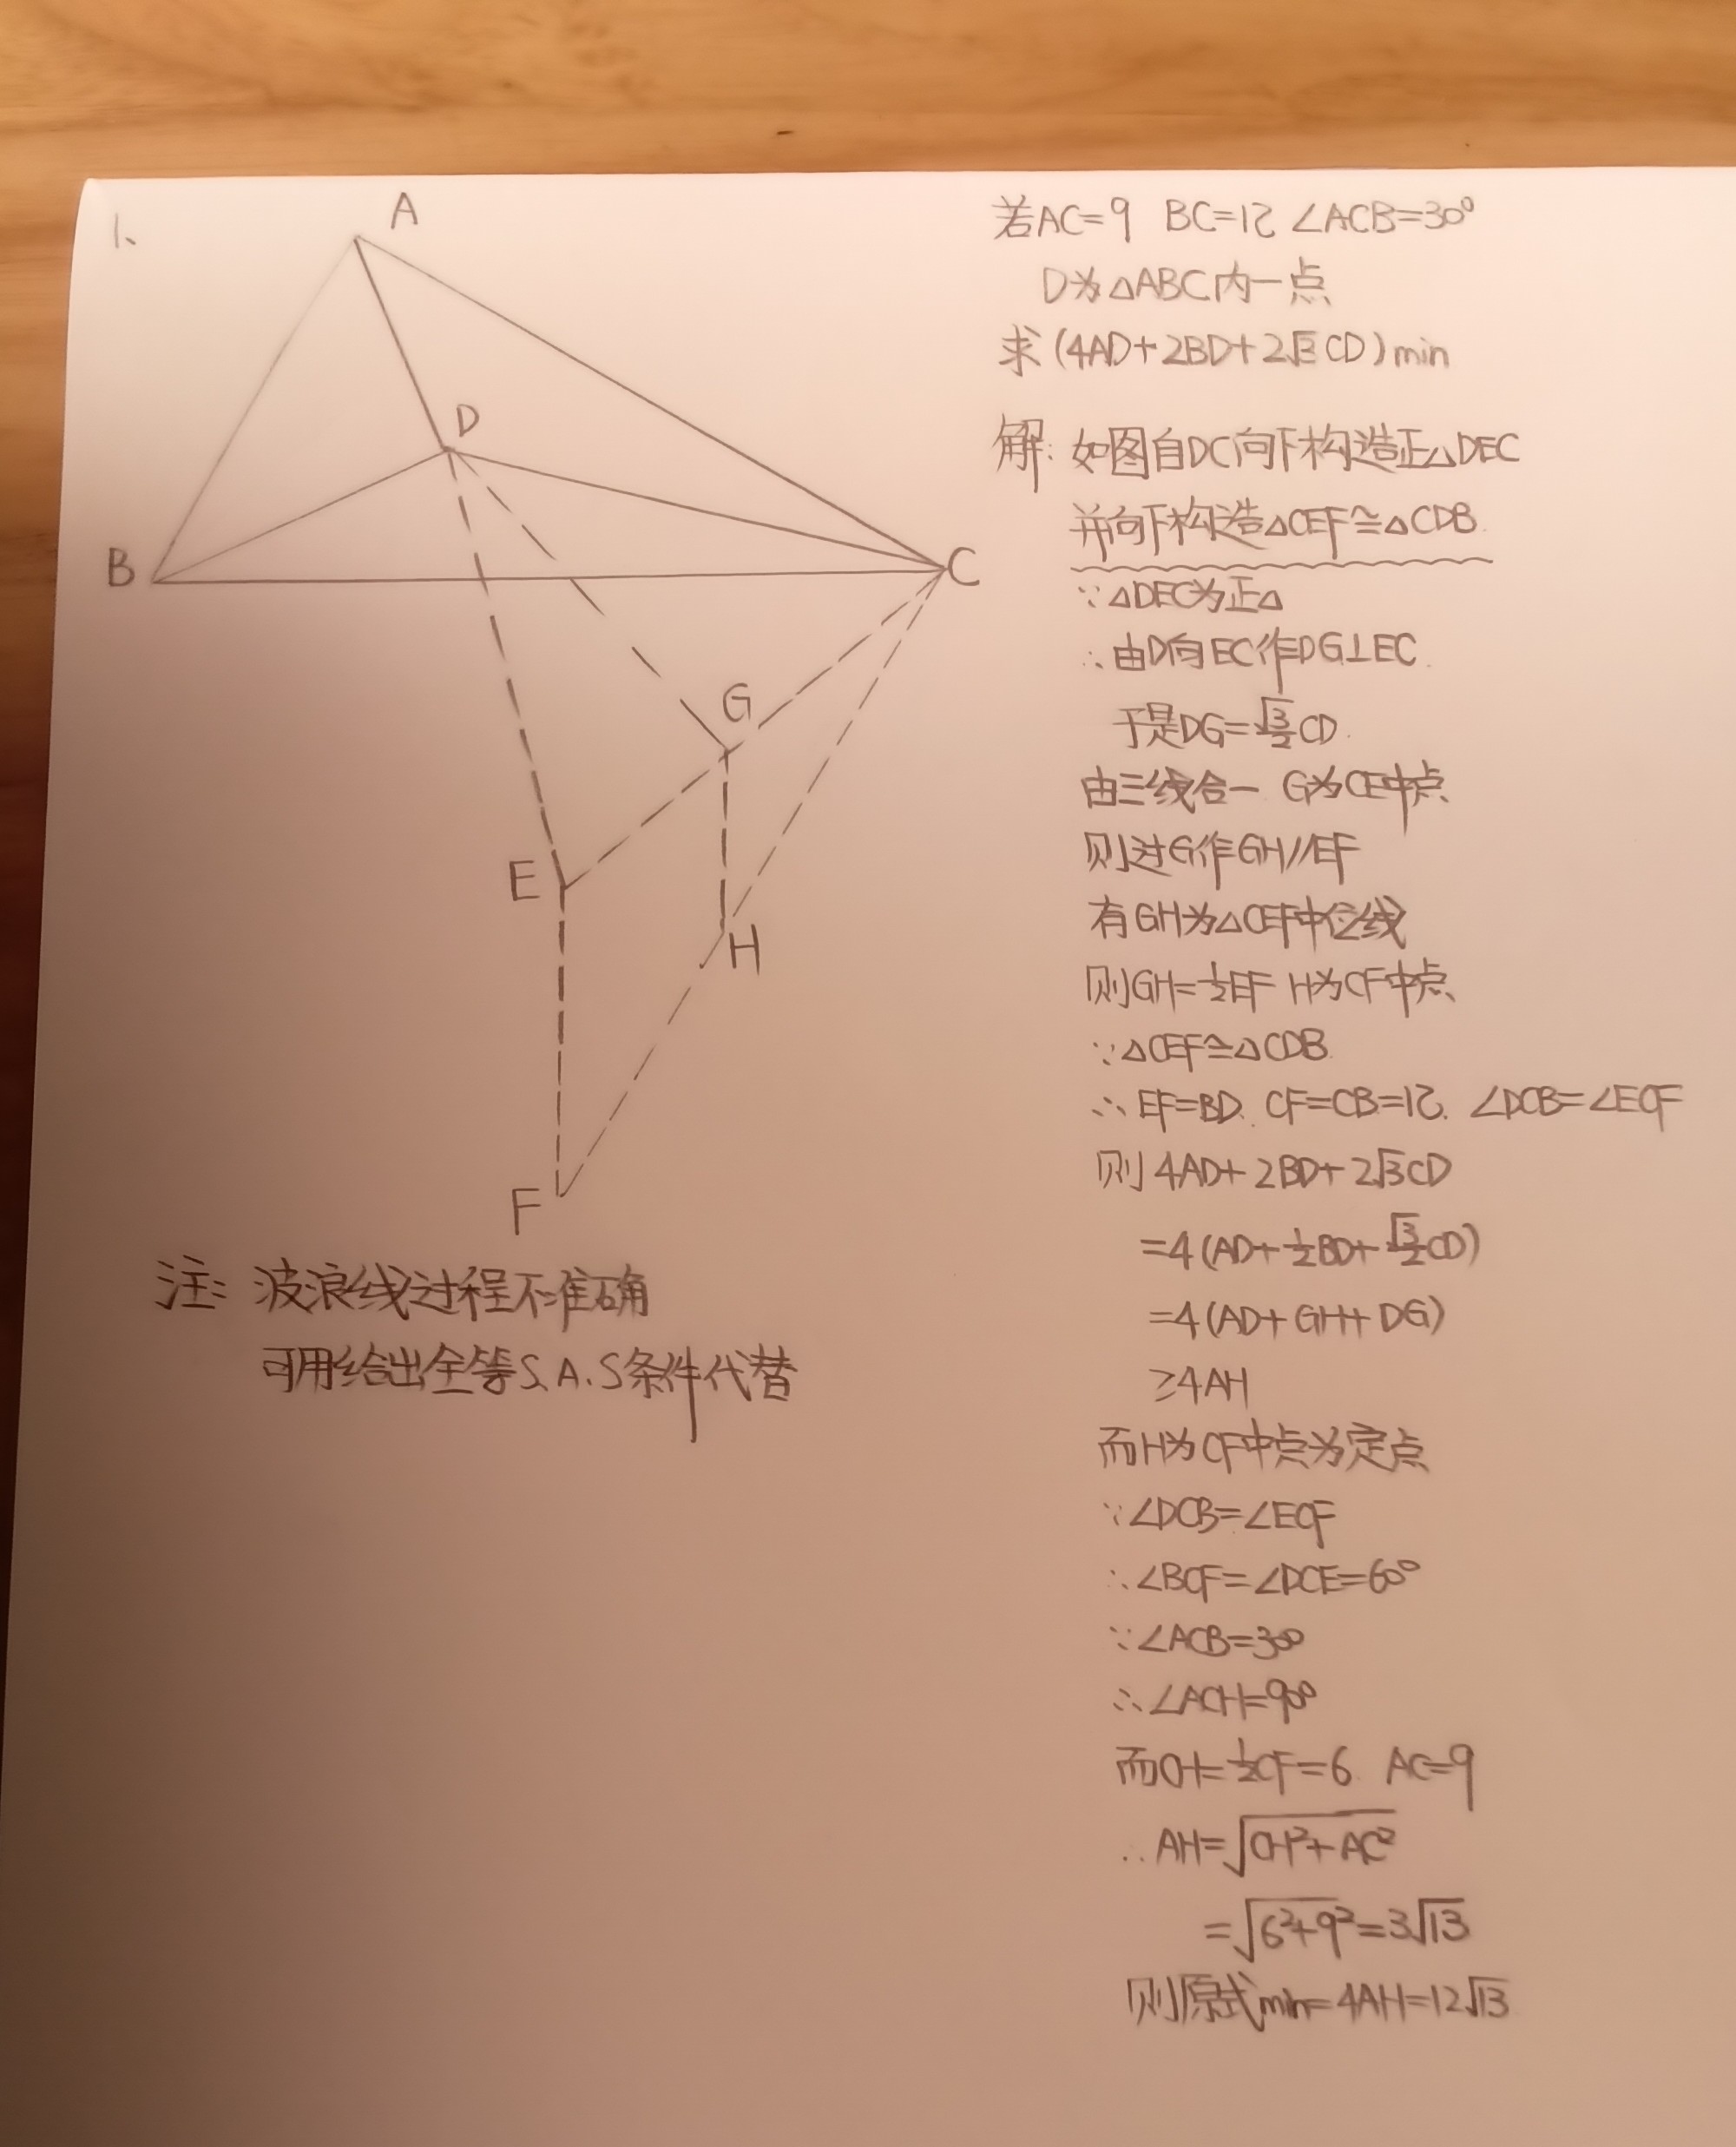 1、
A
B
C
D
E
F
G
H
若AC=9 BC=12 ∠ACB=30°
D为△ABC内一点
求(4AD+2BD+2√3CD)min
解:如图自DC向下构造正△DEC
并向下构造△CEF≅△CDB.
∵△DEC为正△
∴由D向EC作DG⊥EC.
于是DG=√3/2CD.
由三线合一 G为CE中点
则过G作GH//EF
有GH为△CEF中位线
则GH=1/2EF H为CF中点
∵△CEF≅△CDB.
∴EF=BD. CF=CB=12. ∠DCB=∠ECF
则4AD+2BD+2√3CD
=4(AD+1/2BD+√3/2CD)
=4(AD+GH+DG)
≥4AH
而H为CF中点为定点
∵∠DCB=∠ECF
∴∠BCF=∠DCE=60°
∵∠ACB=30°
∴∠ACH=90°
而CH=1/2CF=6. AC=9
∴AH=√(CH²+AC²)
=√(6²+9²)=3√13
则原式min=4AH=12√13
注:波浪线过程不准确
可用给出全等S.A.S条件代替